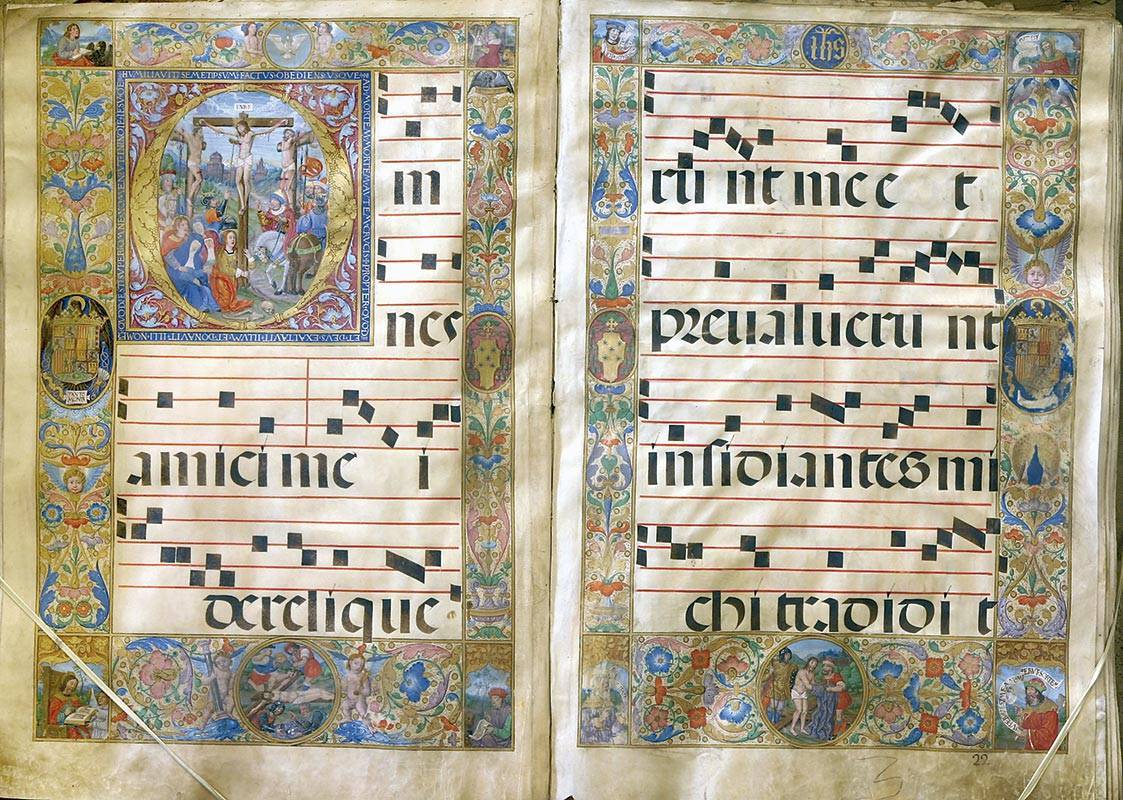 HVMILIAVIT SEMETIPSVM FACTVS OBEDIENS VSQVE
AD MORTEM MORTEM AVTEM CRVCIS PROPTER QVOD
ET DEVS EXALTAVIT ILLVM ET DONAVIT ILLI NOME
INRI
m
nes
amici me
derelique
ihs
runt me e t
preualueru nt
insidiantes mi
chi tradidi t
22